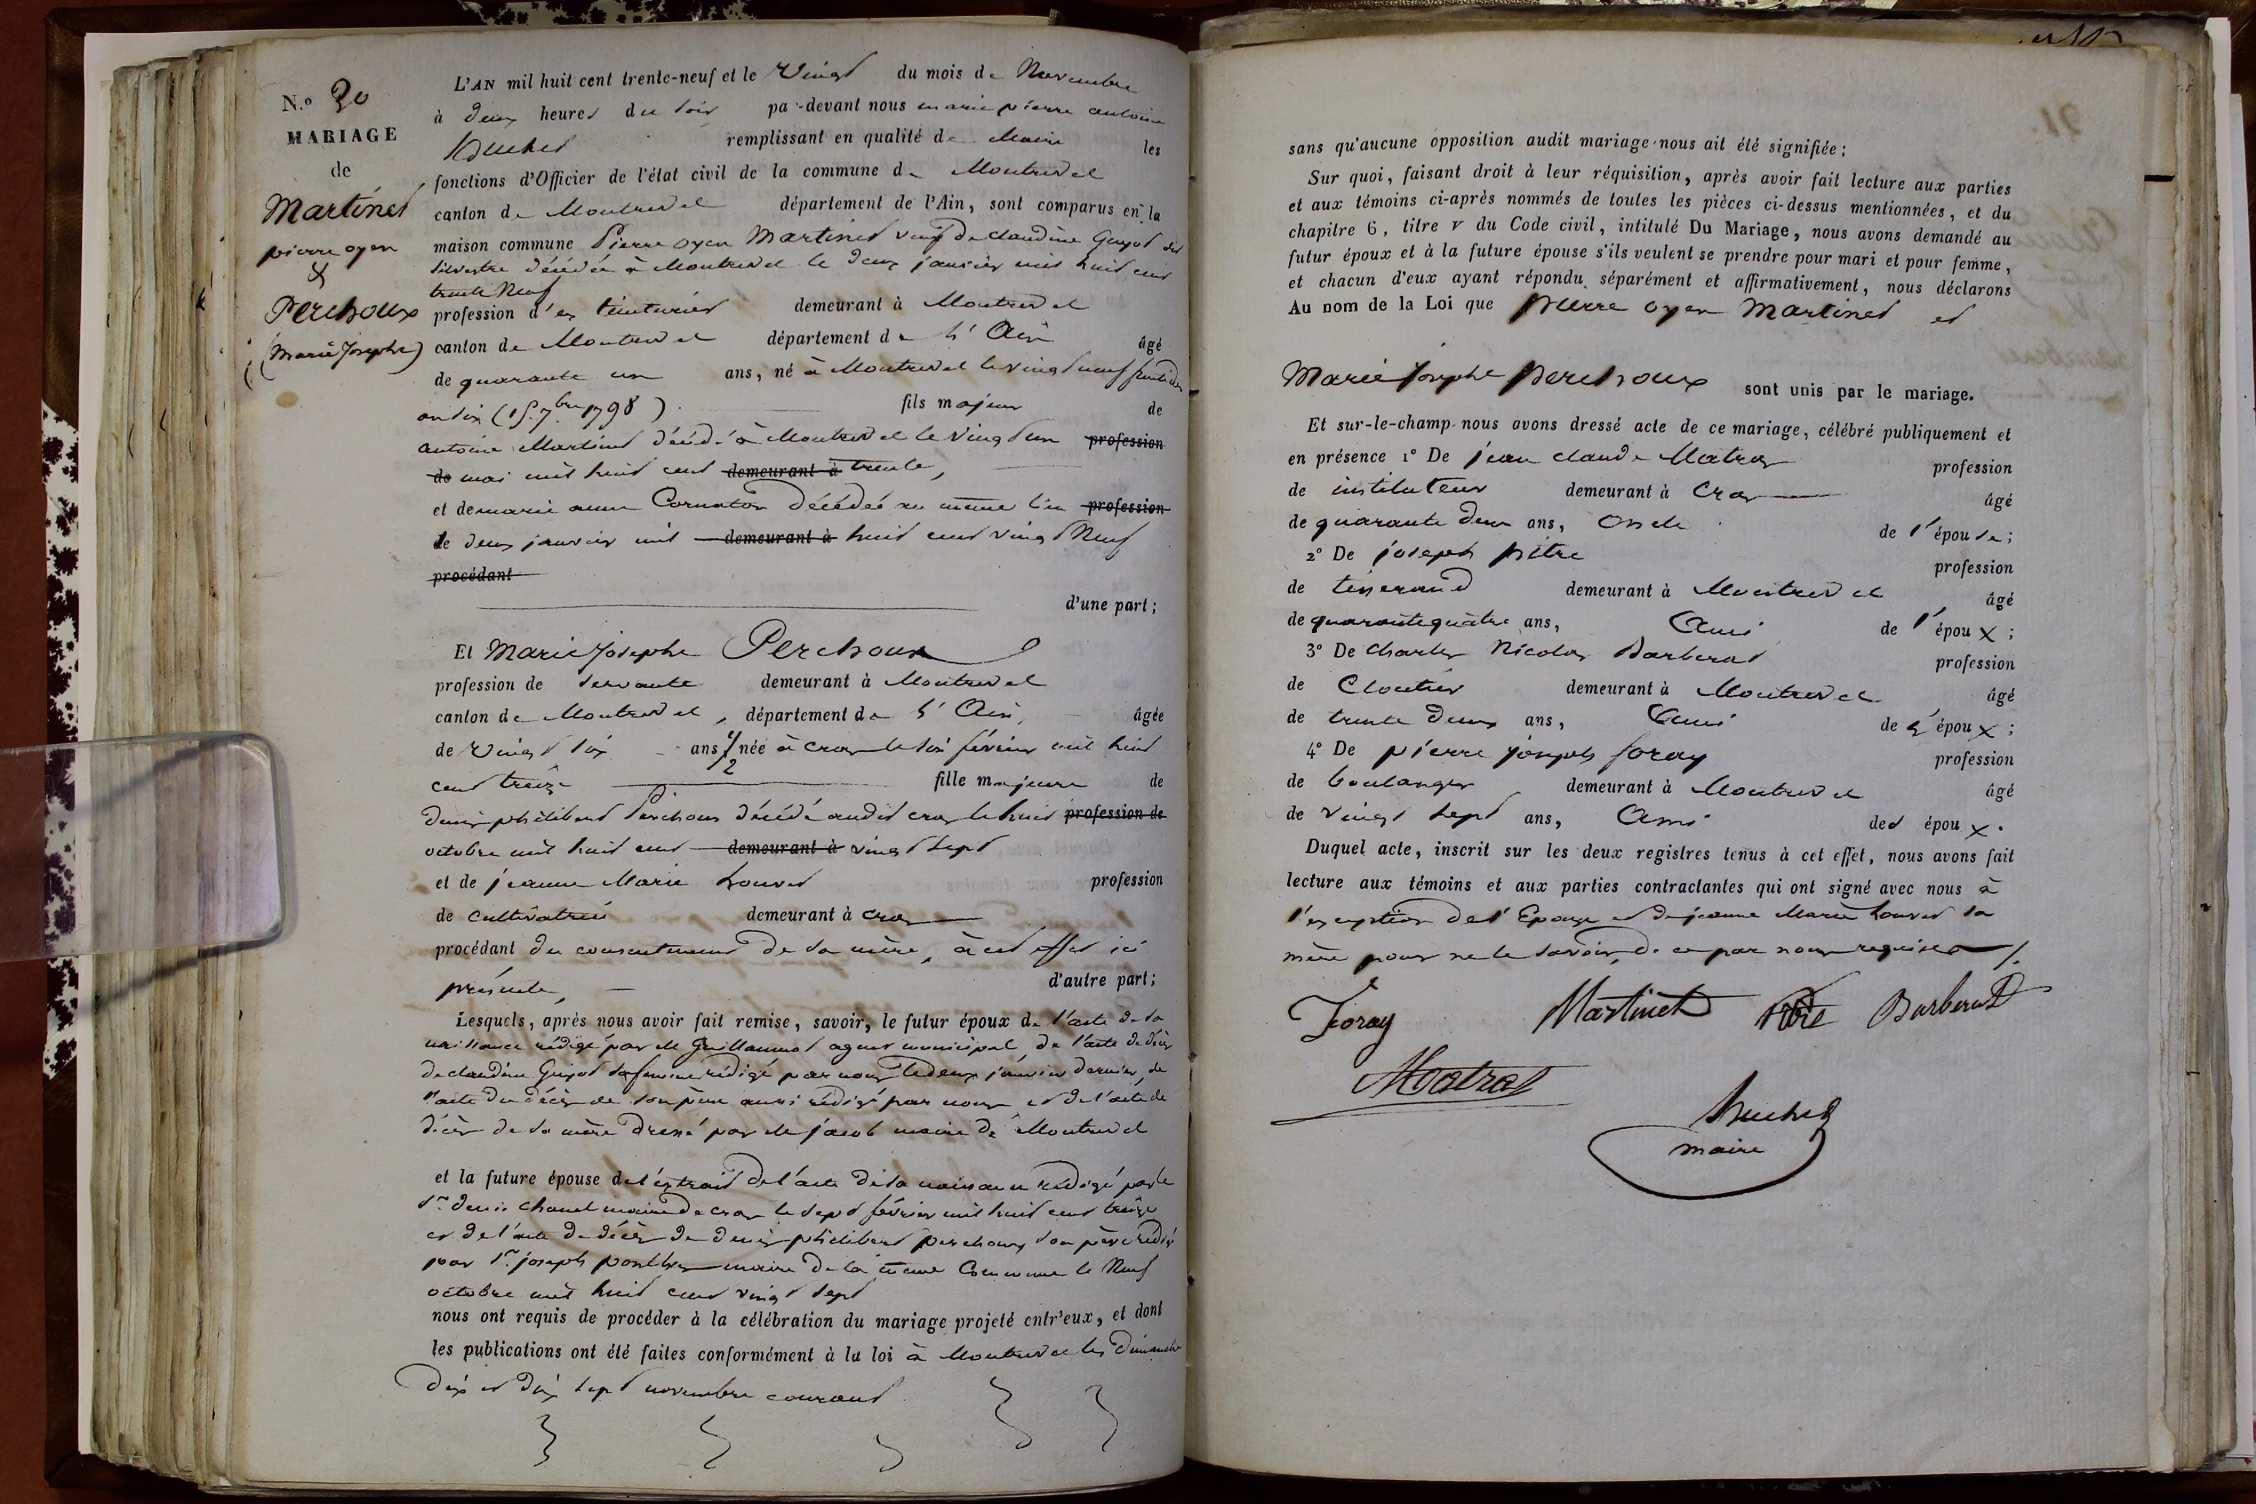 N.o 20
MARIAGE
de
Martinet
pierre oyen
&
Perchoux
(Marie Josephe)
L'AN mil huit cent trente-neuf et le Vingt du mois de Novembre
à deux heures du soir par-devant nous marie pierre antoine
Buchet remplissant en qualité de Maire les
fonctions d'Officier de l'état civil de la commune de Montrevel
canton de Montrevel département de l'Ain, sont comparus en la
maison commune Pierre oyen Martinet veuf de claudine Guyot dit
Silvestre décédée à Montrevel le deux janvier mil huit cent
trente Neuf
profession d'ex teinturier demeurant à Montrevel
canton de Montrevel département de L'Ain âgé
de quarante un ans, né à Montrevel le vingt neuf fructidor
an six (15 7bre 1798) fils majeur de
antoine Martinet décédé à Montrevel le vingt un profession
de mai mil huit cent demeurant à trente,
et de marie anne Cornaton décédée au même lieu profession
le deux janvier mil demeurant à huit cent vingt Neuf
procédant
d'une part;
Et Marie Josephe Perchoux
profession de servante demeurant à Montrevel
canton de Montrevel, département de L'Ain, âgée
de Vingt six ans 1/2 née à cras le six février mil huit
cent treize fille majeure de
denis philibert Perchoux décédé audit cras le huit profession de
octobre mil huit cent demeurant à vingt sept
et de jeanne Marie profession
de cultivatrice demeurant à cras
procédant du consentement de sa mère, à cet effet ici
présente, d'autre part;
Lesquels, après nous avoir fait remise, savoir, le futur époux de l'acte de sa
naissance rédigé par Me Guillaumot agent municipal, de l'acte de décès
de claudine Guyot sa femme rédigé par nous le deux janvier dernier, de
l'acte du décès de son père aussi rédigé par nous et de l'acte de
décès de sa mère dressé par Me jacob maire de Montrevel
et la future épouse de l'extrait de l'acte de sa naissance rédigé par le
Sr denis chanel maire de cras le sept février mil huit cent treize
et de l'acte de décès de denis philibert perchoux son père rédigé
par Sr joseph maire de la même Commune le Neuf
octobre mil huit cent vingt sept
nous ont requis de procéder à la célébration du mariage projeté entr'eux, et dont
les publications ont été faites conformément à la loi à Montrevel les dimanches
dix et dix sept novembre courant
sans qu'aucune opposition audit mariage nous ait été signifiée;
Sur quoi, faisant droit à leur réquisition, après avoir fait lecture aux parties
et aux témoins ci-après nommés de toutes les pièces ci-dessus mentionnées, et du
chapitre 6, titre V du Code civil, intitulé Du Mariage, nous avons demandé au
futur époux et à la future épouse s'ils veulent se prendre pour mari et pour femme,
et chacun d'eux ayant répondu séparément et affirmativement, nous déclarons
Au nom de la Loi que pierre oyen Martinet et
Marie Josephe perchoux sont unis par le mariage.
Et sur-le-champ nous avons dressé acte de ce mariage, célébré publiquement et
en présence 1° De jean claude Matras profession
de instituteur demeurant à Cras âgé
de quarante deux ans, Oncle de l'épouse;
2° De joseph pitre profession
de tisserand demeurant à Montrevel âgé
de quarante quatre ans, Ami de l'époux;
3° De charles Nicolas Barberat profession
de Cloutier demeurant à Montrevel âgé
de trente deux ans, Ami de L'époux;
4° De pierre joseph foray profession
de boulanger demeurant à Montrevel âgé
de vingt sept ans, Ami des époux.
Duquel acte, inscrit sur les deux registres tenus à cet effet, nous avons fait
lecture aux témoins et aux parties contractantes qui ont signé avec nous à
l'exception de l'Epouse et de jeanne Marie sa
mère pour ne le savoir, de ce par nous requises
Foray Martinet Pitre Barberat
Matras
Buchet
maire